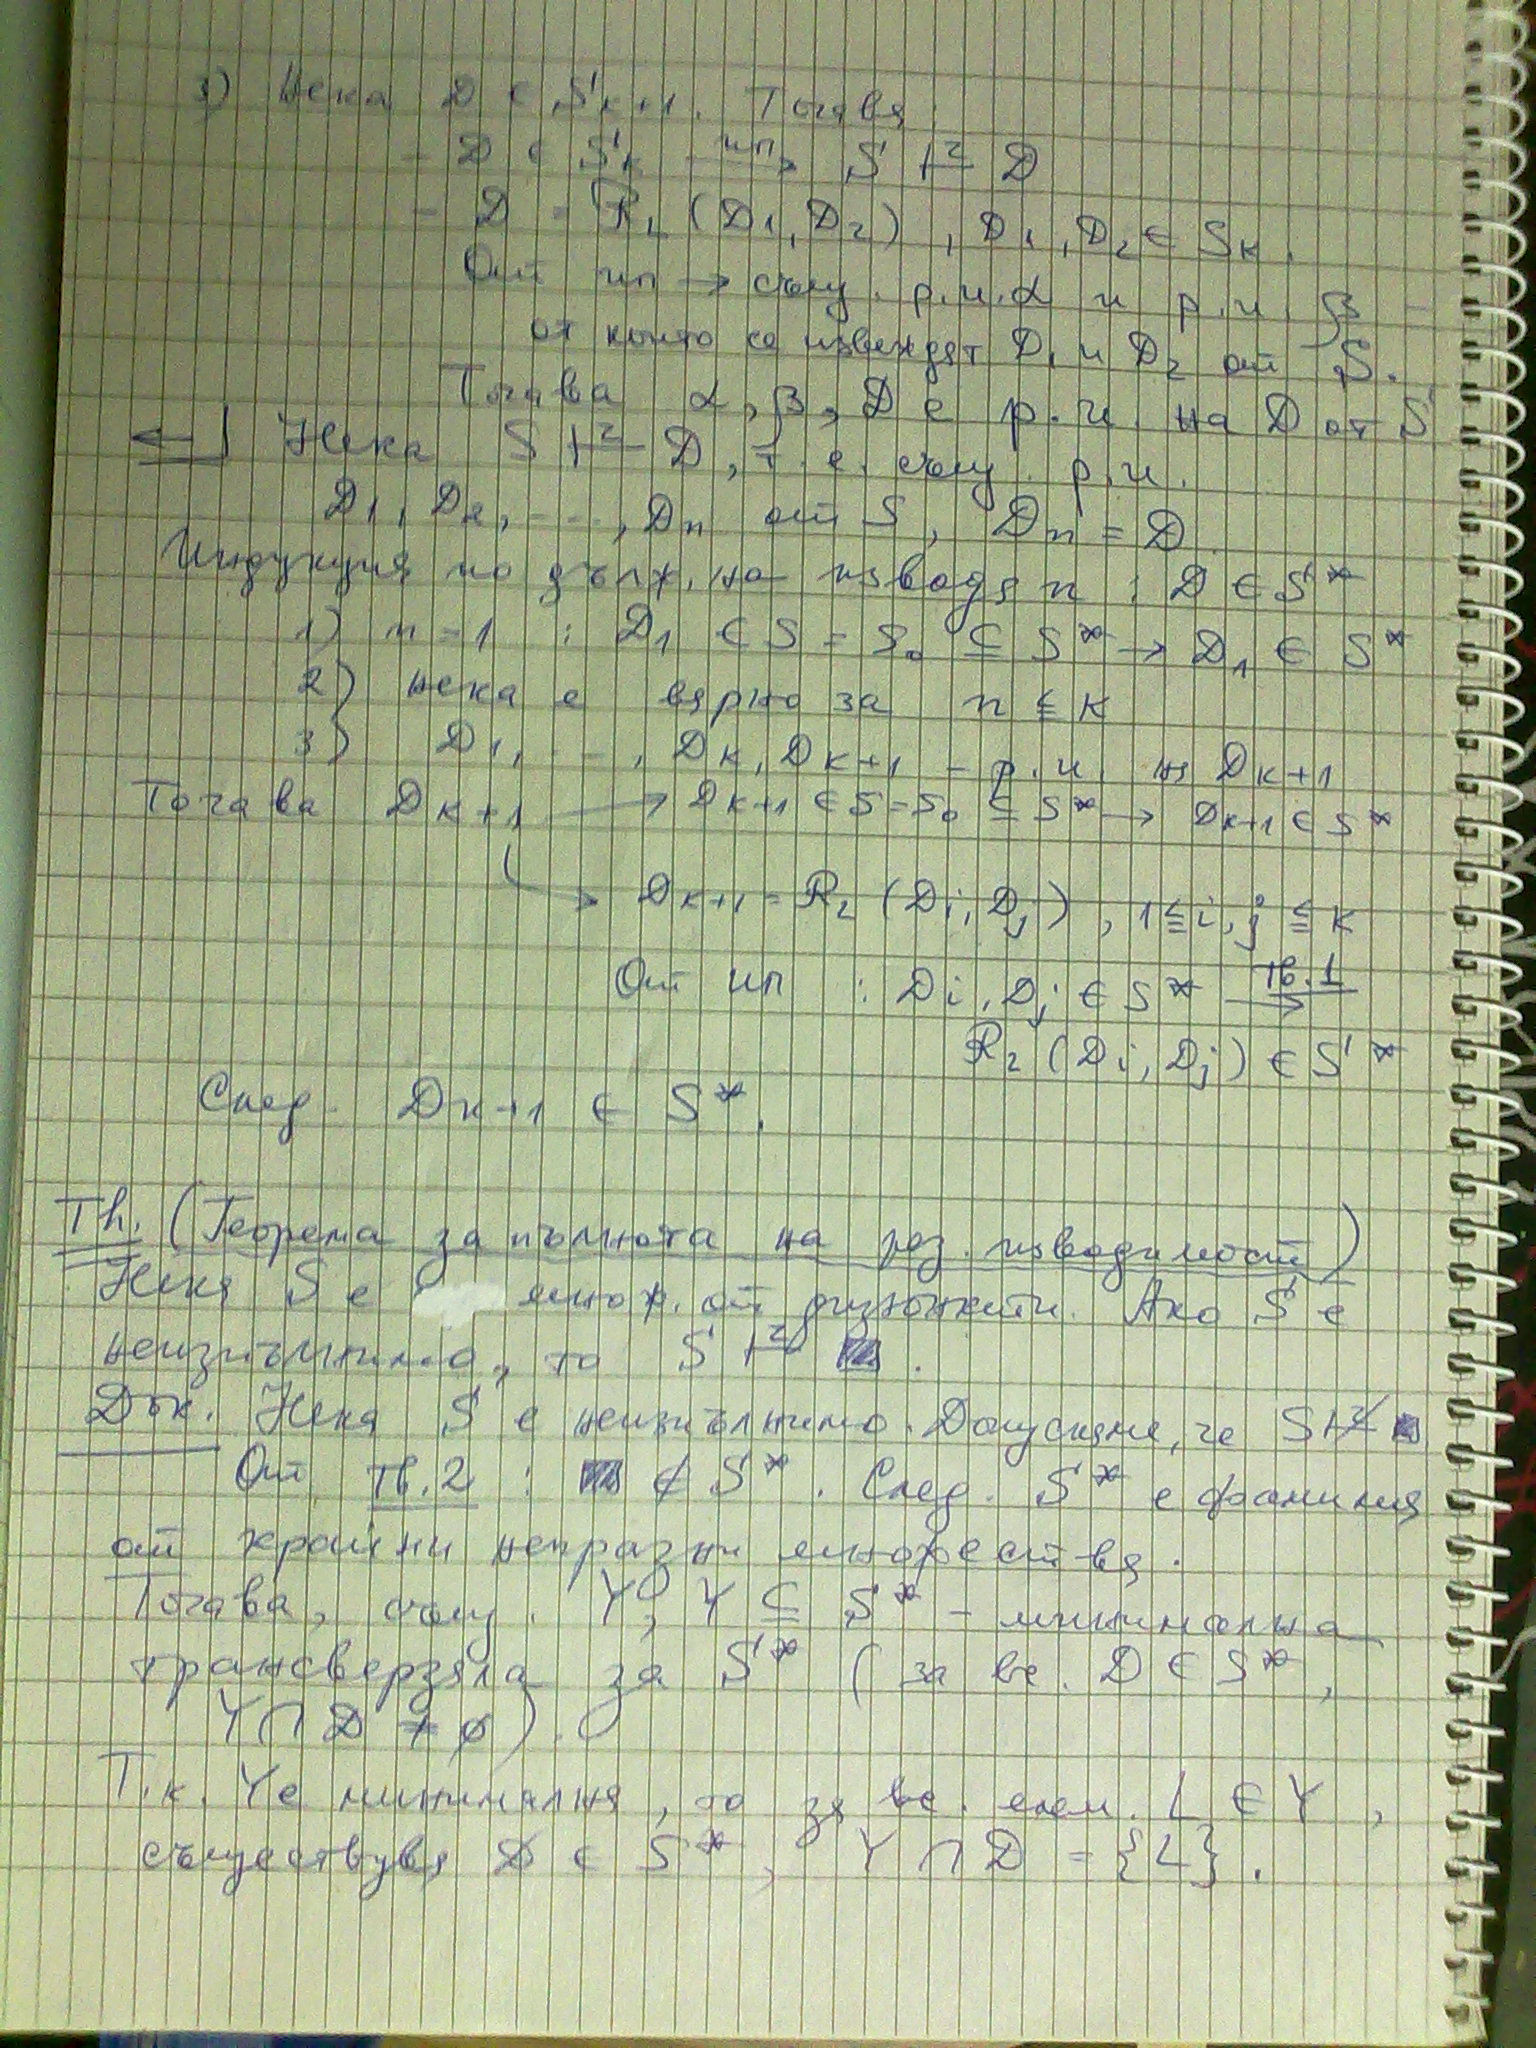 3) Нека D ∈ S_{k+1}. Тогава:
- D ∈ S_k —ип→ S ⊢^r D
- D = R_L (D_1, D_2), D_1, D_2 ∈ S_k.
От ип → същ. р.и. α и р.и. β
от които се извеждат D_1 и D_2 от S.
Тогава α, β, D е р.и. на D от S
⇐ Нека S ⊢^r D, т.е. същ. р.и.
D_1, D_2, ..., D_n от S, D_n = D.
Индукция по дълж. на извода n : D ∈ S*
1) n = 1 : D_1 ∈ S = S_0 ⊆ S* → D_1 ∈ S*
2) нека е вярно за n ≤ k
3) D_1, ..., D_k, D_{k+1} - р.и. на D_{k+1}
Тогава D_{k+1} → D_{k+1} ∈ S = S_0 ⊆ S* → D_{k+1} ∈ S*
→ D_{k+1} = R_L (D_i, D_j), 1 ≤ i, j ≤ k
От ип : D_i, D_j ∈ S* —Тв.1→
R_L (D_i, D_j) ∈ S*
След. D_{k+1} ∈ S*.
Th. (Теорема за пълнота на рез. изводимост)
Нека S е множ. от дизюнкти. Ако S е
неизпълнимо, то S ⊢^r ■.
Док. Нека S е неизпълнимо. Допускаме, че S ⊬^r ■
От Тв.2 : ■ ∉ S*. След. S* е фамилия
от крайни непразни множества.
Тогава, същ. Y, Y ⊆ S* - минимална
трансверзала за S* (за вс. D ∈ S*,
Y ∩ D ≠ ∅).
Т.к. Y е минимална, то за вс. елем. L ∈ Y,
съществува D ∈ S*, Y ∩ D = {L}.